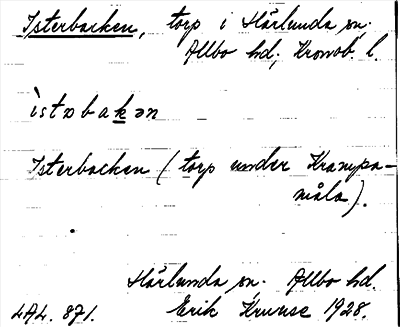 Isterbacken, torp i Härlunda sn.
Allbo hd, Kronob. l.
ìstəbakən
Isterbacken (torp under Krampa-
måla).
Härlunda sn. Allbo hd.
LAL. 871. Erik Kruuse 1928.